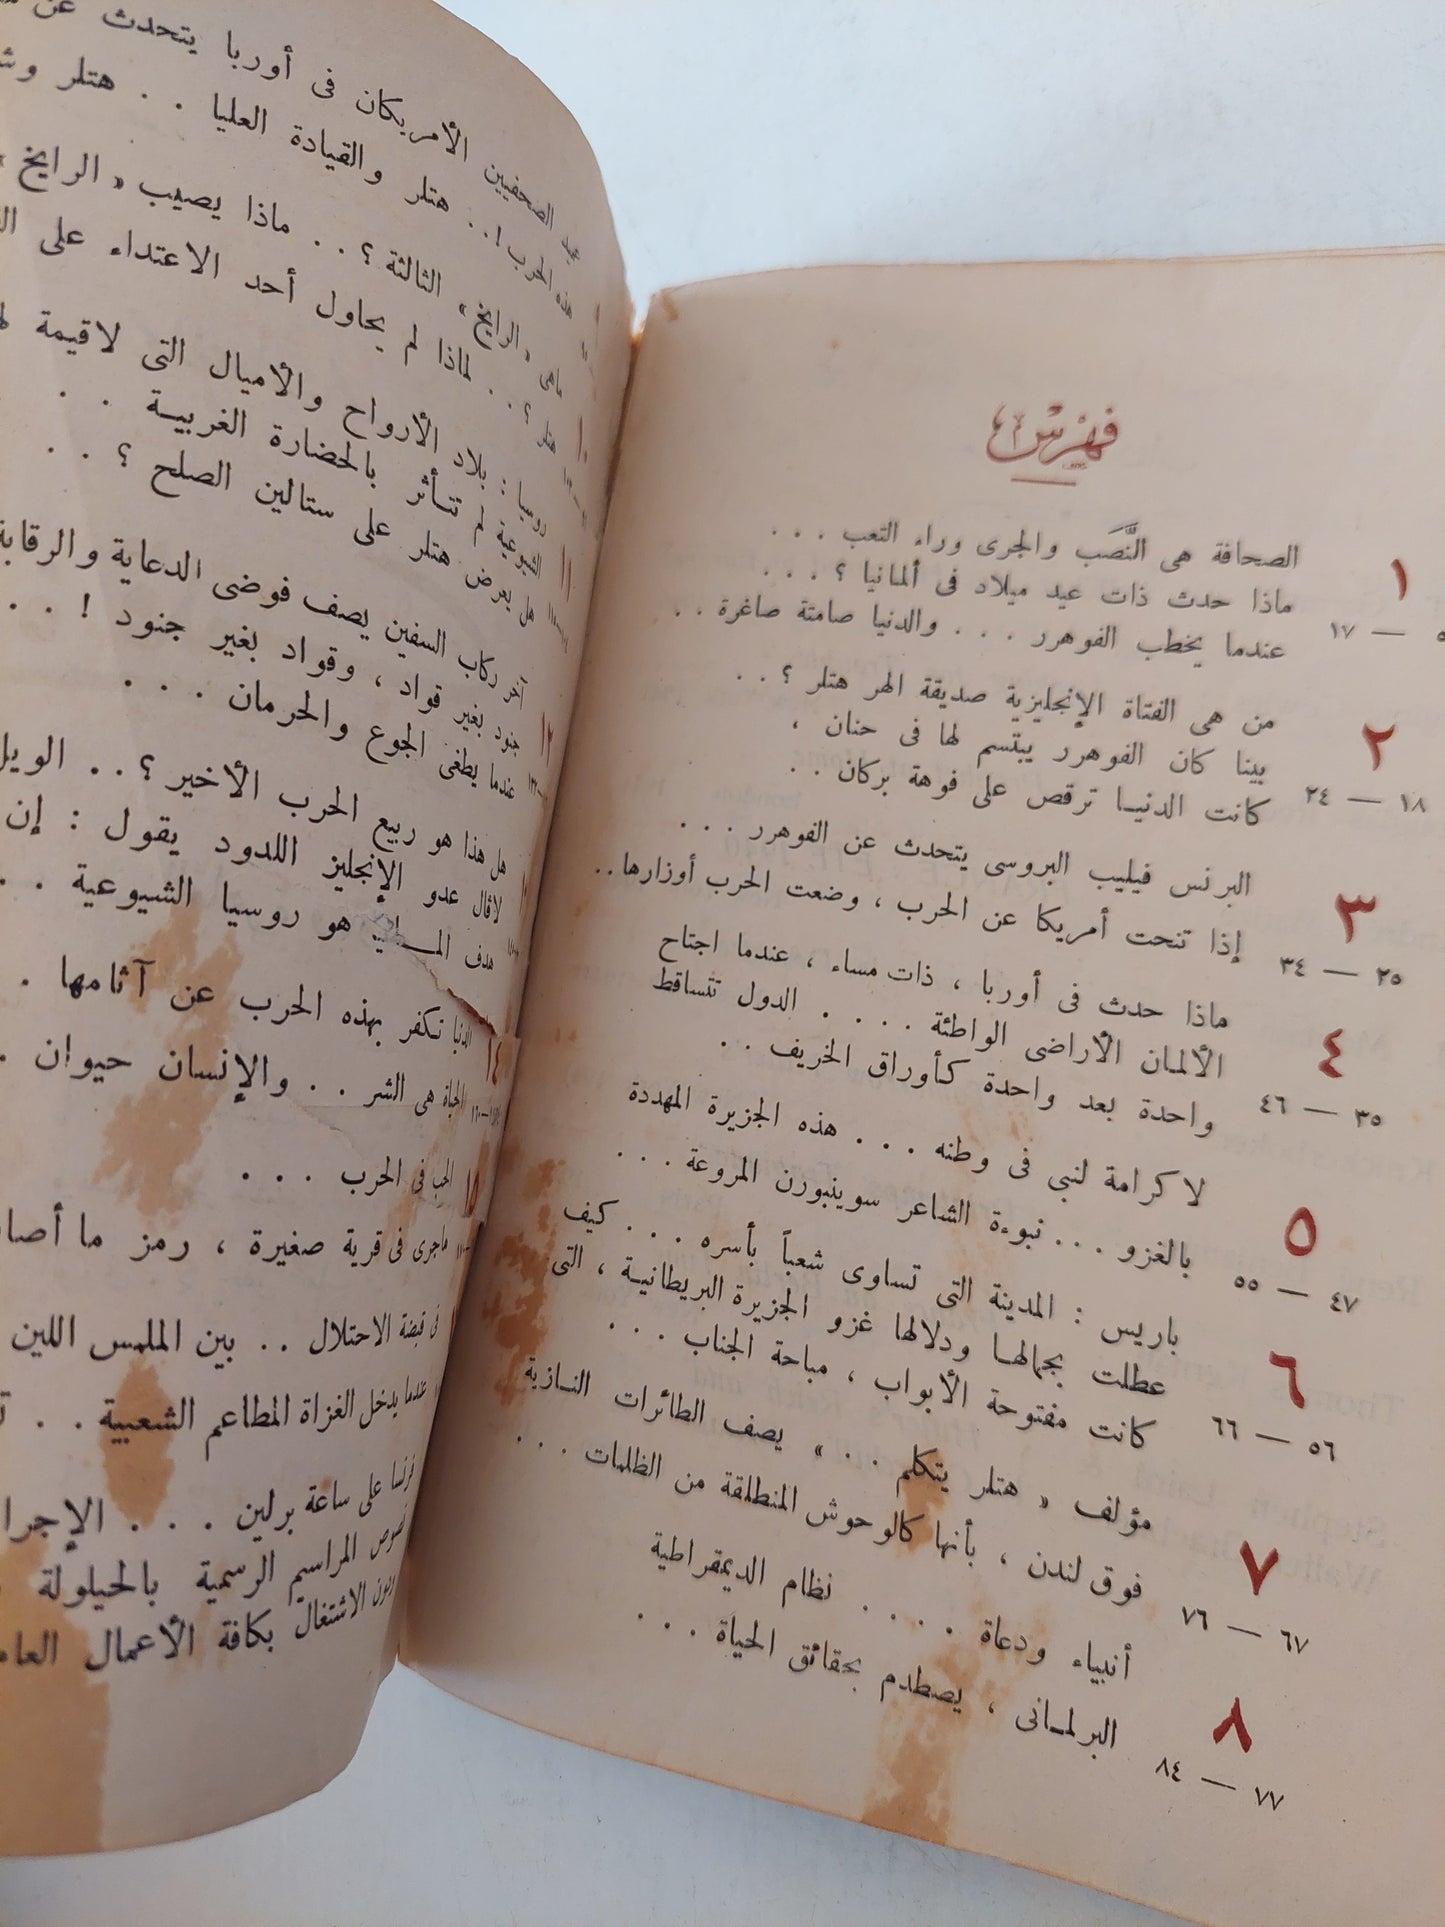 فهرس
١
٥ — ١٧
الصحافة هى النَّصَب والجرى وراء التعب . . .
ماذا حدث ذات عيد ميلاد فى ألمانيا ؟ . . .
عندما يخطب الفوهرر . . . والدنيا صامتة صاغرة . .
٢
١٨ — ٢٤
من هى الفتاة الإنجليزية صديقة الهر هتلر ؟ . .
بينا كان الفوهرر يبتسم لها فى حنان ،
كانت الدنيا ترقص على فوهة بركان . .
٣
٢٥ — ٣٤
البرنس فيليب البروسى يتحدث عن الفوهرر . . .
إذا تنحت أمريكا عن الحرب ، وضعت الحرب أوزارها . .
٤
٣٥ — ٤٦
ماذا حدث فى أوربا ، ذات مساء ، عندما اجتاح
الألمان الأراضى الواطئة . . . . الدول تتساقط
واحدة بعد واحدة كأوراق الخريف . .
٥
٤٧ — ٥٥
لا كرامة لنبى فى وطنه . . . هذه الجزيرة المهددة
بالغزو . . . نبوءة الشاعر سوينبورن المروعة . . .
٦
٥٦ — ٦٦
باريس : المدينة التى تساوى شعباً بأسره . . . كيف
عطلت بجمالها ودلالها غزو الجزيرة البريطانية ، التى
كانت مفتوحة الأبواب ، مباحة الجناب . . .
٧
٦٧ — ٧٦
مؤلف « هتلر يتكلم . . » يصف الطائرات النازية
فوق لندن ، بأنها كالوحوش المنطلقة من الظلمات . . .
٨
٧٧ — ٨٤
أنبياء ودعاة . . . . نظام الديمقراطية
البرلمانى ، يصطدم بحقائق الحياة . . .
الصحفيين الأمريكان فى أوربا يتحدث عن
هذه الحرب ! . . هتلر والقيادة العليا . . هتلر
ماهى « الرايخ » الثالثة ؟ . . ماذا يصيب « الرايخ »
هتلر ؟ . . لماذا لم يحاول أحد الاعتداء على
١٠
روسيا : بلاد الأرواح والأميال التى لاقيمة
الشيوعية لم تتأثر بالحضارة الغربية . .
هل يعرض هتلر على ستالين الصلح ؟ . .
١١
آخر ركاب السفين يصف فوضى الدعاية والرقابة
جنود بغير قواد ، وقواد بغير جنود ! . .
عندما يطغى الجوع والحرمان . . .
١٢
هل هذا هو ربيع الحرب الأخير ؟ . . الويل
لاقال عدو الإنجليز اللدود يقول : إن
هدف هو روسيا الشيوعية . .
الدنيا تكفر بهذه الحرب عن آثامها .
١٤
الحياة هى الشر . . والإنسان حيوان .
الحب فى الحرب . . .
١٥
ماجرى فى قرية صغيرة ، رمز ما
فى قبضة الاحتلال . . بين الملمس اللين
عندما يدخل الغزاة المطاعم الشعبية . .
فرنسا على ساعة برلين . . .
نصوص المراسيم الرسمية بالحيلولة
دون الاشتغال بكافة الأعمال